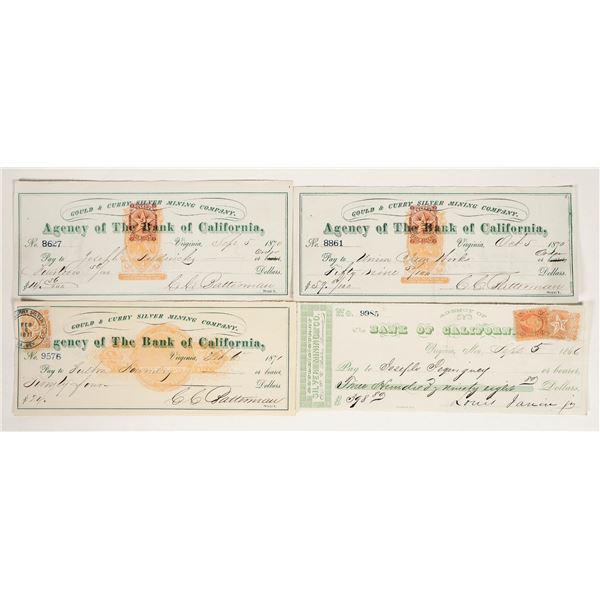 GOULD & CURRY SILVER MINING COMPANY.
Agency of The Bank of California,
No. 8627 Virginia, Sept 5 1870
Pay to Joseph or order
Fourteen Dollars.
C.C. Batterman
GOULD & CURRY SILVER MINING COMPANY.
Agency of The Bank of California,
No. 8861 Virginia, Oct 5 1870
Pay to Union Works or order
Fifty Nine Dollars.
$59
C.C. Batterman
GOULD & CURRY SILVER MINING COMPANY.
FEB
Agency of The Bank of California,
No. 9576 Virginia, Feb 6 1871
Pay to Fulton Foundry or bearer
Twenty four Dollars.
$24
C.C. Batterman
No. 9985 AGENCY OF
The BANK OF CALIFORNIA
SILVER MINING CO.
Virginia, Nev. Sept 5 1866
Pay to Joseph or bearer,
Three Hundred & ninety eight 80 Dollars.
$398 80
Louis Janin jr